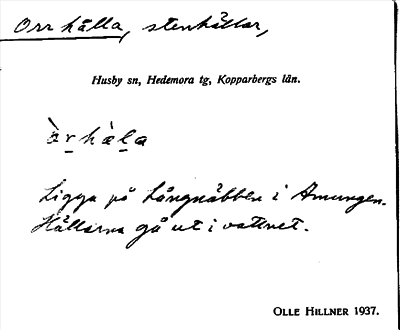 Orrhälla, stenhällar,
Husby sn, Hedemora tg, Kopparbergs län.
òrhæ̀la
Ligga på Långnäbben i Amungen.
Hällarna gå ut i vattnet.
OLLE HILLNER 1937.